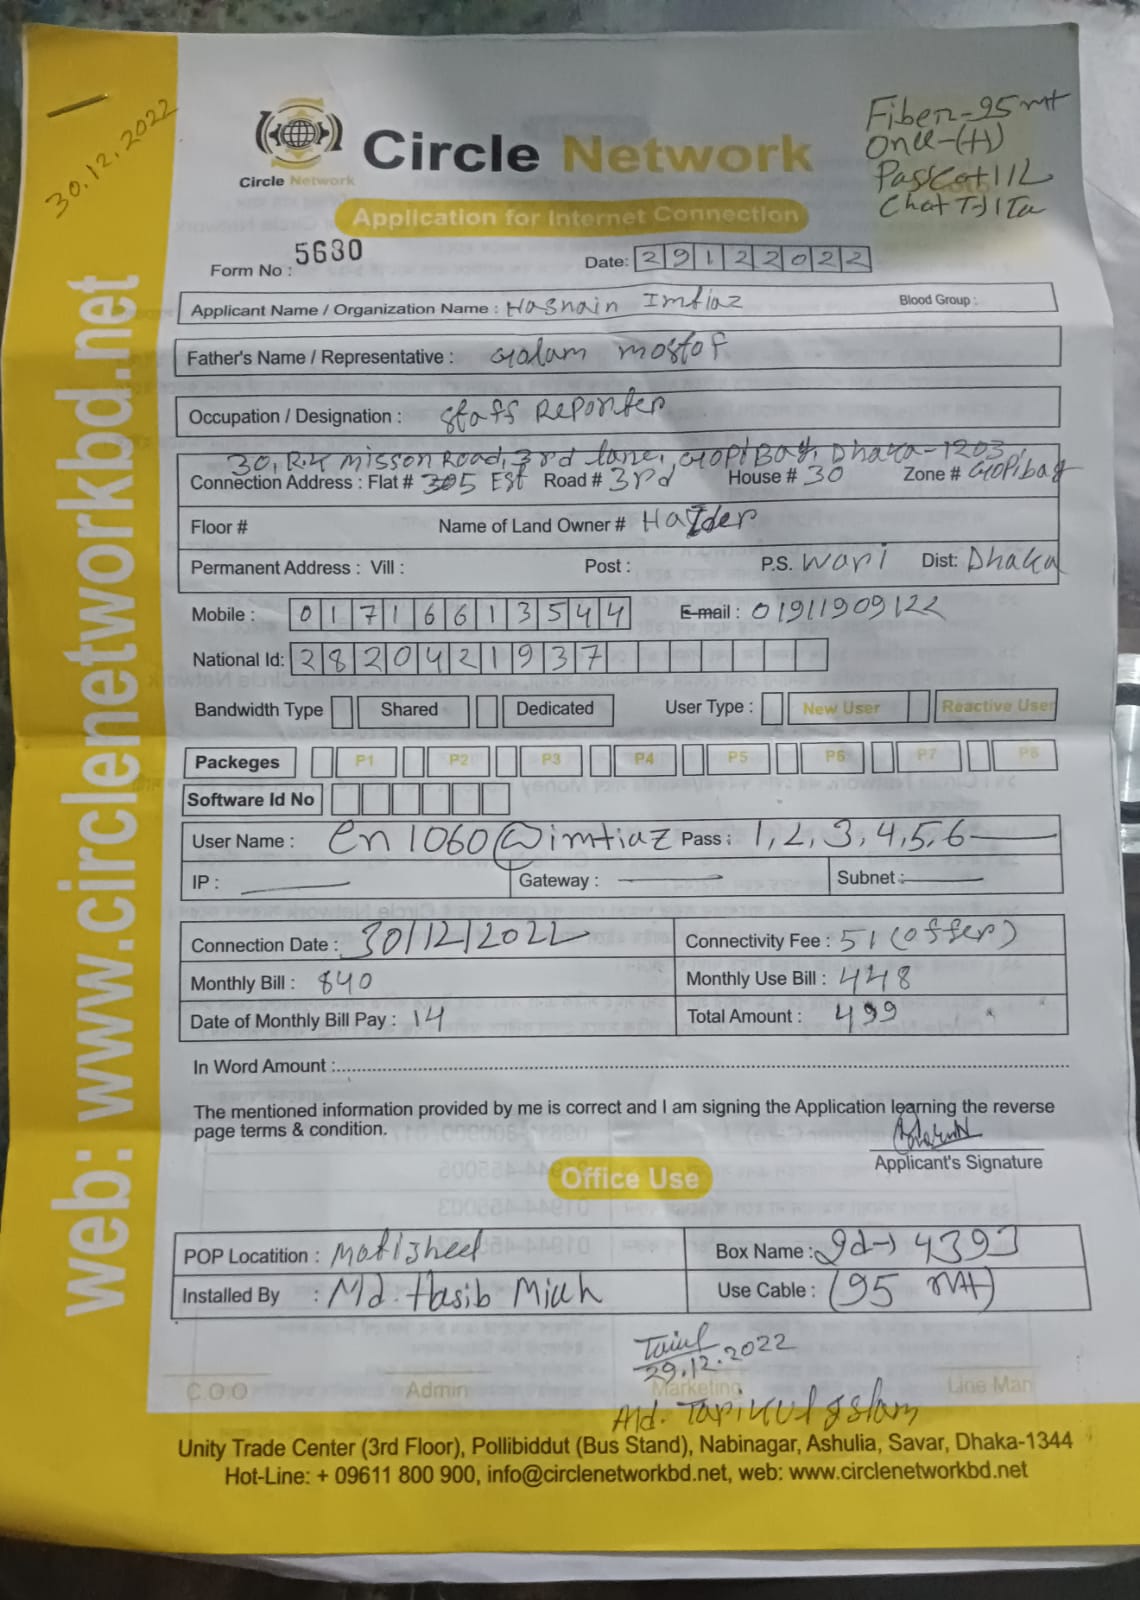 30.12.2022
Fiber-95 mt
Onu-(H)
Circle Network
Circle Network
Application for Internet Connection
Form No : 5630
Date: 29122022
Applicant Name / Organization Name : Hasnain Imtiaz Blood Group :
Father's Name / Representative : Golam mostof
Occupation / Designation : Staff Reporter
30, R.K Misson Road, 3rd lane, GOPIBag, Dhaka-1203,
Connection Address : Flat # 305 Est Road # 3rd House # 30 Zone # GOPIbag
Floor # Name of Land Owner # Haider
Permanent Address : Vill : Post : P.S. Wari Dist: Dhaka
Mobile : 01716613544 E-mail : 01911909122
National Id: 2820421937
Bandwidth Type Shared Dedicated User Type : New User Reactive User
Packeges P1 P2 P3 P4 P5 P6 P7 P8
Software Id No
User Name : en1060@imtiaz Pass : 1,2,3,4,5,6
IP : Gateway : Subnet :
Connection Date : 30/12/2022 Connectivity Fee : 51 (offer)
Monthly Bill : 840 Monthly Use Bill : 448
Date of Monthly Bill Pay : 14 Total Amount : 499
In Word Amount :
The mentioned information provided by me is correct and I am signing the Application learning the reverse
page terms & condition.
Applicant's Signature
Office Use
POP Locatition : Motijheel Box Name : 4393
Installed By : Md. Hasib Miah Use Cable : (95 Mt)
29.12.2022
C.O.O Admin Marketing Line Man
Md. Tarikul Islam
Unity Trade Center (3rd Floor), Pollibiddut (Bus Stand), Nabinagar, Ashulia, Savar, Dhaka-1344
Hot-Line: + 09611 800 900, info@circlenetworkbd.net, web: www.circlenetworkbd.net
web: www.circlenetworkbd.net